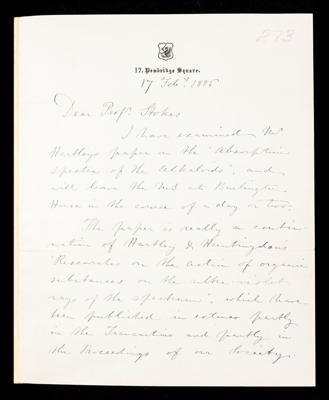 273
17, Pembridge Square.
17 Feby. 1885
Dear Profr. Stokes
I have examined Mr
Hartley's paper on the "Absorption
spectra of the Alkaloids", and
will leave the MS at Burlington
House in the course of a day or two.
The paper is really a contin-
uation of Hartley & Huntingdon's
"Researches on the action of organic
substances on the ultra violet
rays of the spectrum", which have
been published in extenso partly
in the Transactions and partly in
the Proceedings of our Society.